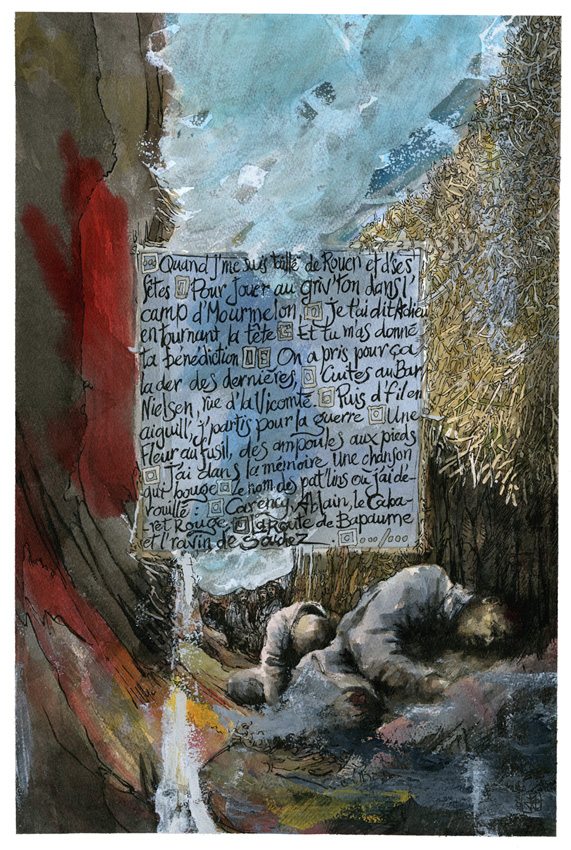 Quand j'me suis taillé de Rouen et d'ses
fêtes Pour jouer au griv'ton dans l'
camp d'Mourmelon, je t'ai dit Adieu
en tournant la tête Et tu m'as donné
ta bénédiction On a pris pour ça
la der des dernières, Cuites au Bar
Nielsen, rue d'la Vicomté. Puis d'fil en
aiguill', j'partis pour la guerre Une
Fleur au fusil, des ampoules aux pieds
J'ai dans la mémoire une chanson
qui bouge Le nom des pat'lins où j'ai dé-
rouillé Carency, Ablain, le Caba-
ret Rouge, La Route de Bapaume
et l'ravin de Souchez .../...